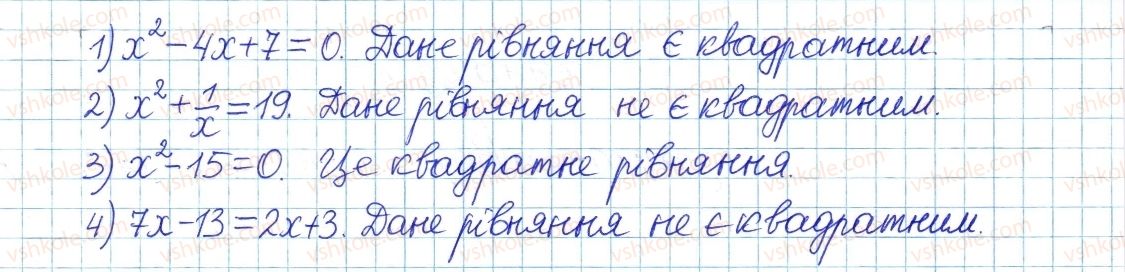 1) x² − 4x + 7 = 0. Дане рівняння є квадратним.
2) x² + 1/x = 19. Дане рівняння не є квадратним.
3) x² − 15 = 0. Це квадратне рівняння.
4) 7x − 13 = 2x + 3. Дане рівняння не є квадратним.